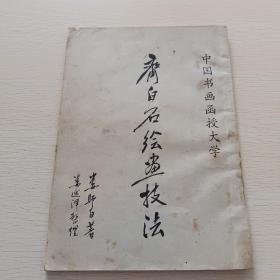 中国书画函授大学
齐白石绘画技法
娄师白著
姜延泽整理